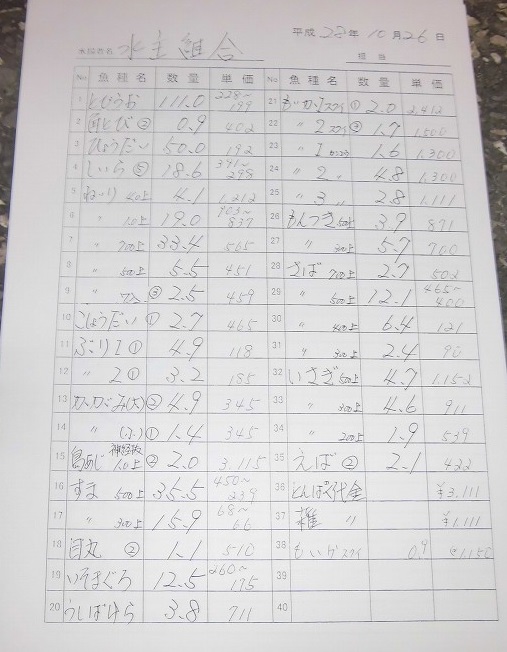 平成 28年 10月 26日
水揚者名 水主組合
担当
No 魚種名 数量 単価 No 魚種名 数量 単価
1 とびうお 111.0 228~199
2 角とび② 0.9 402
3 ひょうだい 50.0 192
4 しいら⑤ 18.6 391~298
5 ねいり 4.1 1,212
6 〃 19.0 837
7 〃 700上 33.4 565
8 〃 500上 5.5 451
9 〃 ③ 2.5 459
10 こしょうだい① 2.7 465
11 ぶり I① 4.9 118
12 〃 2① 3.2 185
13 カガミ(大)② 4.9 345
14 〃 (小)① 1.4 345
15 島あじ 神経抜 1.0上② 2.0 3,115
16 すま 500上 35.5 450~239
17 〃 300上 15.9 68~66
18 目丸② 1.1 510
19 いそまぐろ 12.5 260~175
20 ういばけら 3.8 711
21 ① 2.0 2,412
22 〃 2 1.7 1,500
23 〃 I 1.6 1,300
24 〃 2 〃 4.8 1,300
25 〃 3 〃 2.8 1,111
26 もんつき 500上 3.7 871
27 〃 300上 5.7 700
28 さば 700上 2.7 502
29 〃 500上 12.1 465~400
30 〃 400上 6.4 121
31 〃 300上 2.4 90
32 いさぎ 500上 4.7 1,152
33 〃 300上 4.6 911
34 〃 200上 1.9 539
35 えば② 2.1 422
36 とんぼく代金 ¥3,111
37 雑 〃 ¥1,111
38 0.9 1,150
39
40